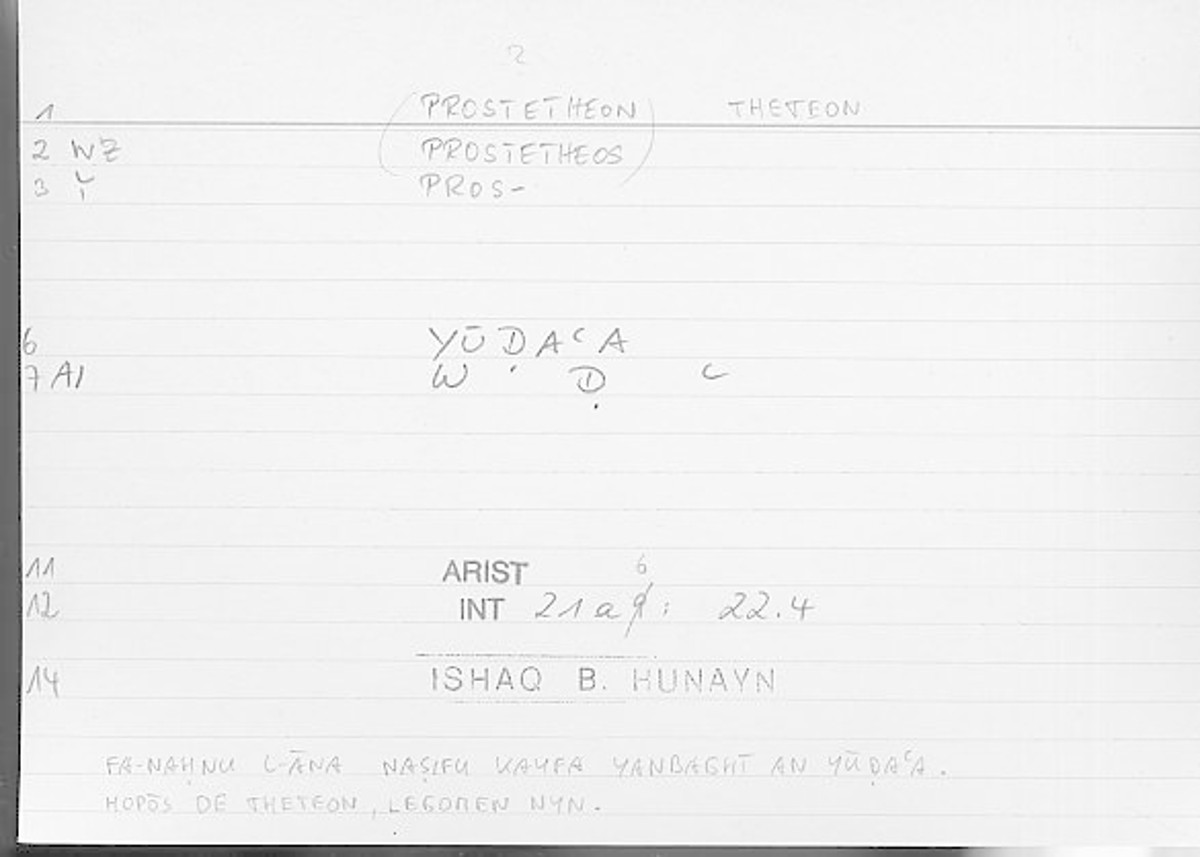 2
1 (PROSTETHEON) THETEON
2 WZ (PROSTETHEOS)
3 PROS-
6 YŪḌAʿA
7 AI W Ḍ ʿ
11 ARIST 6
12 INT 21a9: 22.4
14 ISHAQ B. HUNAYN
FA-NAḤNU L-ĀNA NAṢIFU KAYFA YANBAGHĪ AN YŪḌAʿA.
HOPŌS DE THETEON, LEGOMEN NYN.